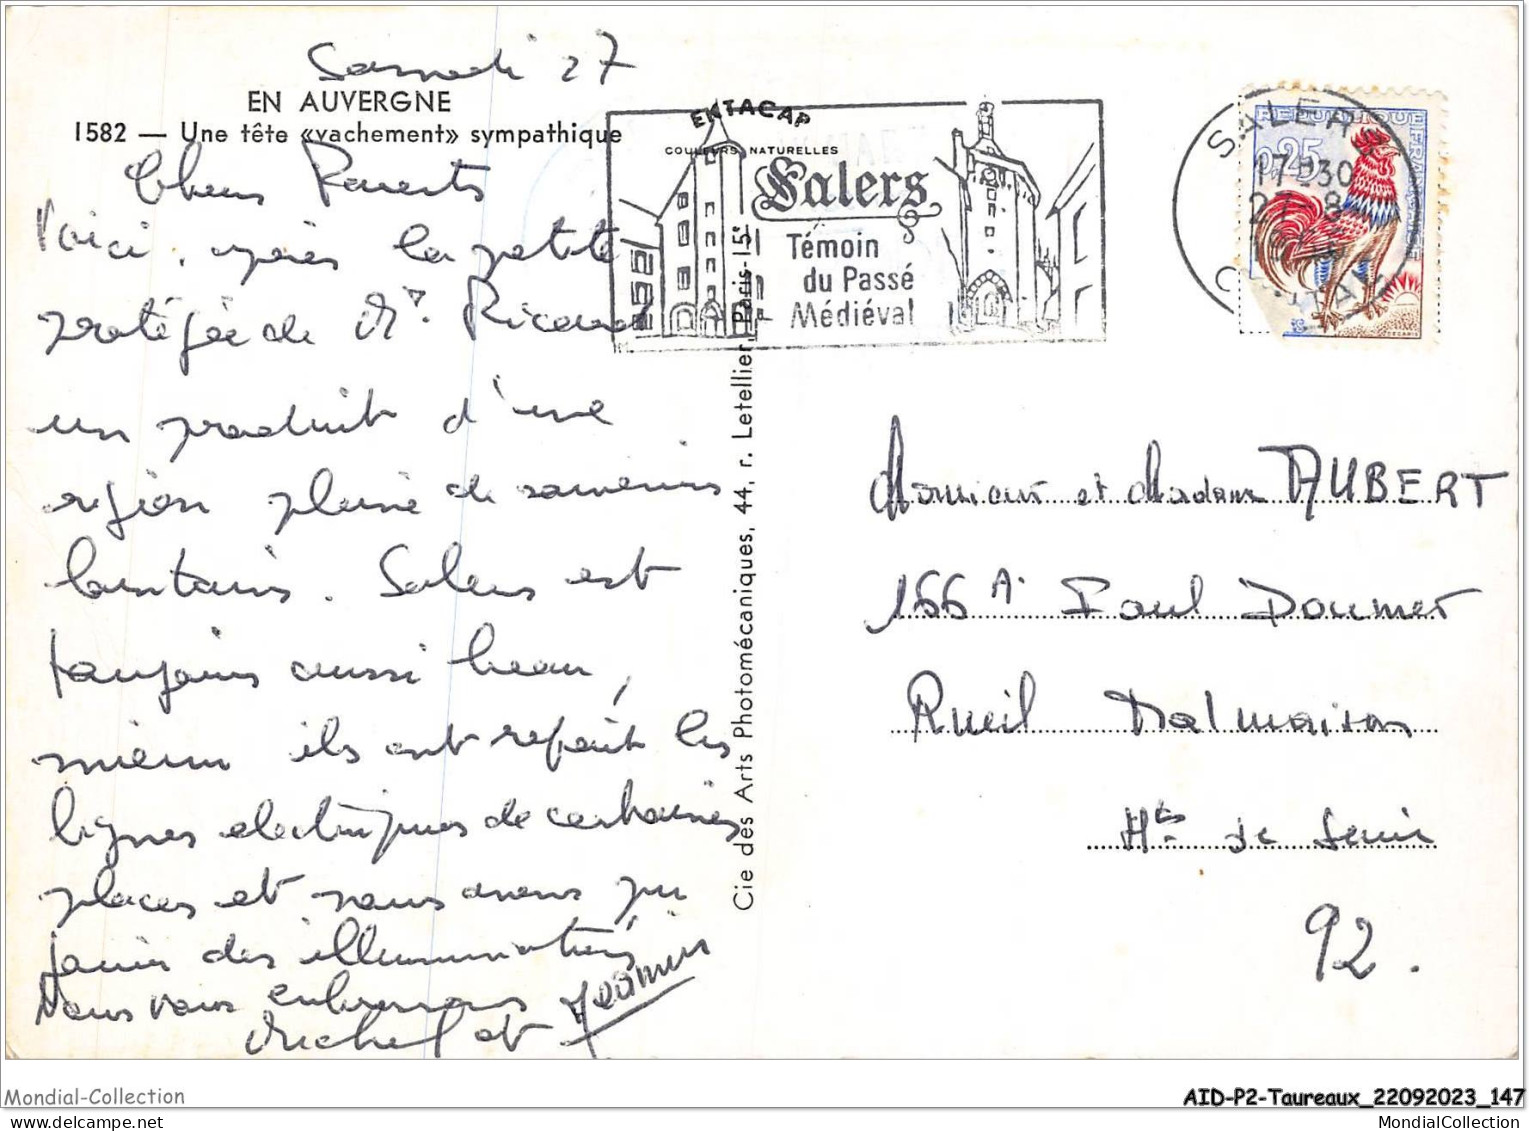 Samedi 27
EN AUVERGNE
1582 — Une tête «vachement» sympathique
Chers Parents
Voici, après la petite
protégée de Mr Ricard
un produit d'une
région pleine de souvenirs
lointains. Salers est
toujours aussi beau,
mieux ils ont refait les
lignes electriques de certaines
places et nous avons pu
jouir des illuminations
Nous vous embrassons
Michel et Jeanine
EKTACAP
COULEURS NATURELLES
Salers
Témoin
du Passé
Médiéval
Cie des Arts Photomécaniques, 44, r. Letellier, Paris-15e
SALERS
17H30
27-8
CANTAL
REPUBLIQUE FRANÇAISE
0,25
Monsieur et Madame AUBERT
166 A. Paul Doumer
Rueil Malmaison
Hts de Seine
92.
Mondial-Collection
AID-P2-Taureaux_22092023_147
mondialcollection.com
MondialCollection